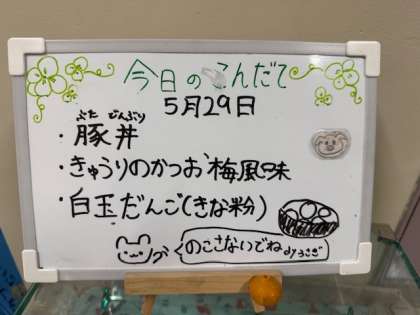 今日のこんだて
5月29日
ぶた どんぶり
・豚丼
・きゅうりのかつお梅風味
・白玉だんご(きな粉)
のこさないでね byうさぎ